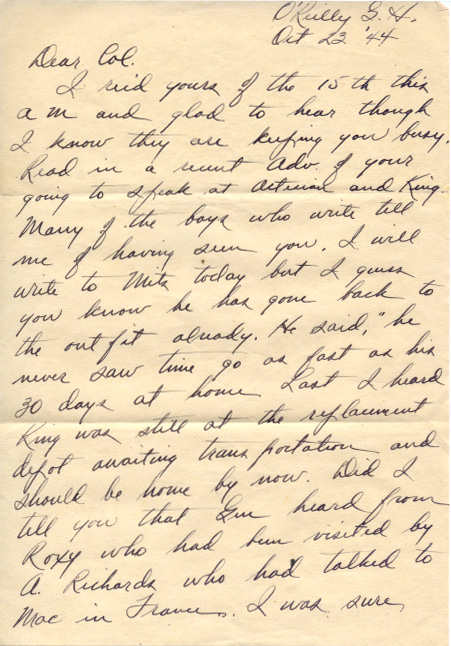 O'Reilly G. H.
Oct 23 '44
Dear Col.
I rec'd yours of the 15th this
a m and glad to hear though
I know they are keeping you busy.
Read in a recent Adv. of your
going to speak at Artesian and King.
Many of the boys who write tell
me of having seen you. I will
write to Mitz today but I guess
you know he has gone back to
the outfit already. He said, "he
never saw time go as fast as his
30 days at home. Last I heard
King was still at the replacement
depot awaiting transportation and
should be home by now. Did I
tell you that Em heard from
Roxy who had been visited by
A. Richards who had talked to
Mac in France. I was sure